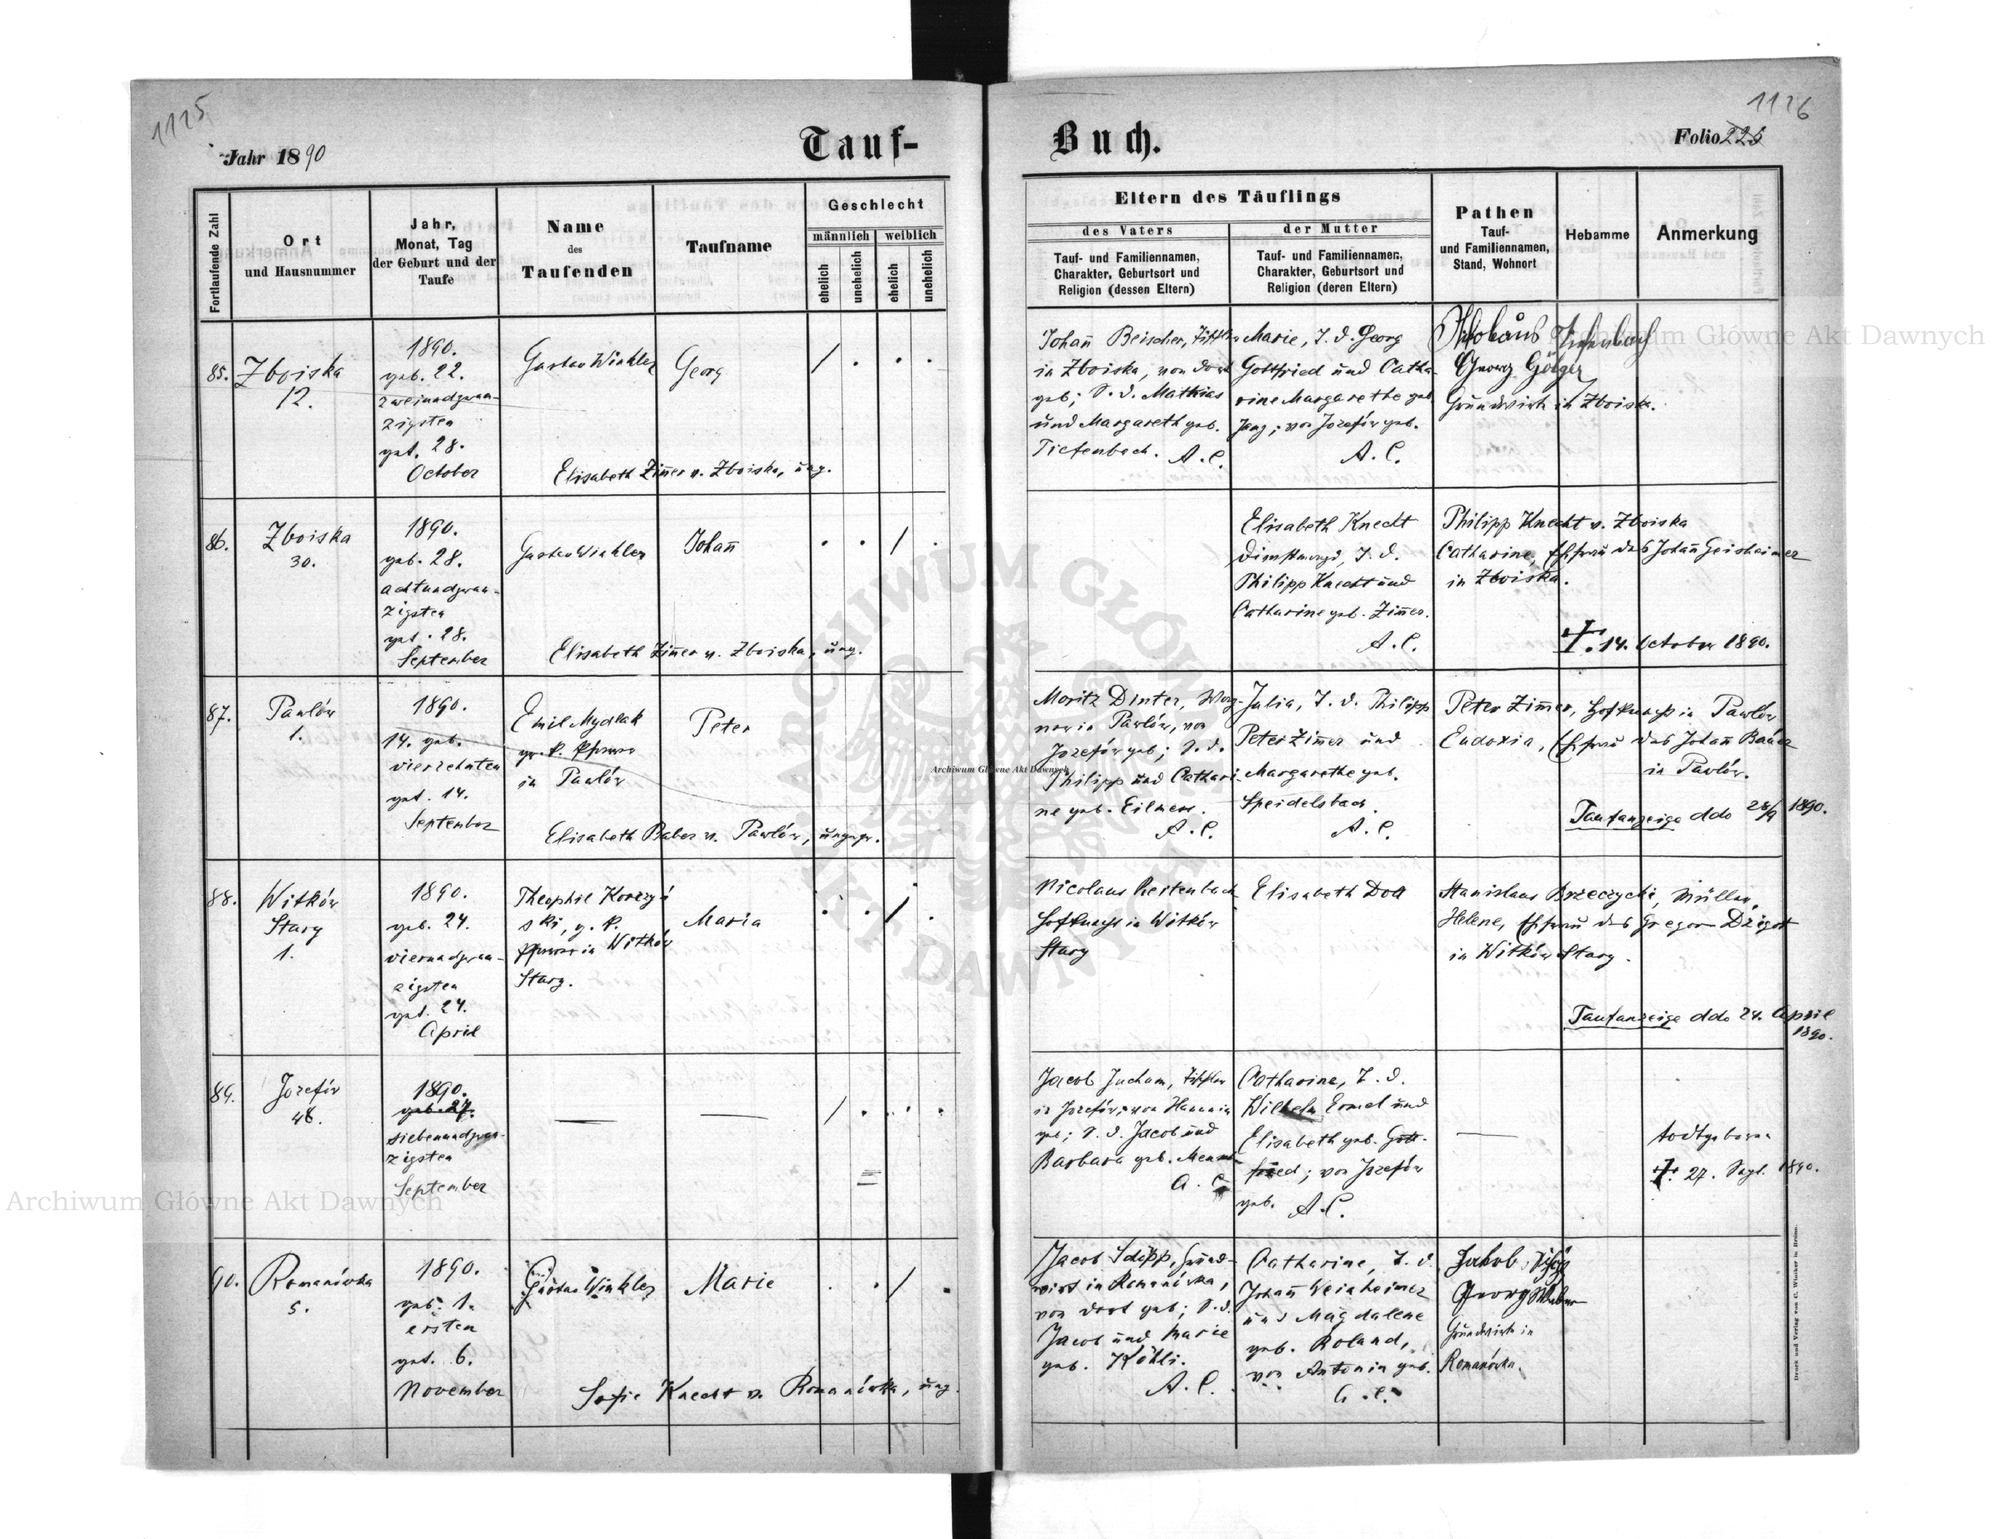 1125
1126
Jahr 1890
Tauf-
Buch.
Folio 225
Fortlaufende Zahl
Ort
und Hausnummer
Jahr,
Monat, Tag
der Geburt und der
Taufe
Name
des
Taufenden
Taufname
Geschlecht
männlich
weiblich
ehelich
unehelich
ehelich
unehelich
Eltern des Täuflings
des Vaters
der Mutter
Tauf- und Familiennamen,
Charakter, Geburtsort und
Religion (dessen Eltern)
Tauf- und Familiennamen,
Charakter, Geburtsort und
Religion (deren Eltern)
Pathen
Tauf-
und Familiennamen,
Stand, Wohnort
Hebamme
Anmerkung
85.
Zboiska
12.
1890.
geb. 22.
zweiundzwan-
zigsten
get. 28.
October
Gustav Winkler
Georg
Elisabeth Zim̅er v. Zboiska, ung.
Johan̅ Beischer,
in Zboiska, von dort
geb; S. d. Mathias
und Margareth geb.
Tiefenbach. A. C.
Marie, T. d. Georg
Gottfried und Catha-
rine Margarethe geb.
Jung; von Josefów geb.
A. C.
Tiefenbach
Georg
Grundwirth in Zboiska.
86.
Zboiska
30.
1890.
geb. 28.
achtundzwan-
zigsten
get. 28.
September
Gustav Winkler
Johan̅
Elisabeth Zim̅er v. Zboiska, ung.
Elisabeth Knecht
Dienstmagd, T. d.
Philipp Knecht und
Catharine geb. Zim̅er.
A. C.
Philipp Knecht v. Zboiska
Catharine, Ehefrau des Johan̅ Geisheimer
in Zboiska.
14. October 1890.
87.
Pawlów
1.
1890.
14. geb.
vierzehnten
get. 14.
September
Emil Mydlak
gr. k. Pfarrer
in Pawlów
Peter
Elisabeth Baber v. Pawlów, ungepr.
Moritz Dinter,
in Pawlów, von
Josefów geb; S. d.
Philipp und Cathari-
ne geb. Eilmess.
A. C.
Julia, T. d. Philipp
Peter Zim̅er und
Margarethe geb.
Speidelsbach.
A. C.
Peter Zim̅er, Hofknecht in Pawlów
Eudoxia, Ehefrau des Johan̅ Bauer
in Pawlów.
Taufanzeige ddo 28/9 1890.
88.
Witków
Stary
1.
1890.
geb. 24.
vierundzwan-
zigsten
get. 24.
April
Theophil Korczyń
ski, g. k.
Pfarrer in Witków
Stary.
Maria
Nicolaus Reitenbach
Hofknecht in Witków
Stary
Elisabeth Doll
Stanislaus Brzeczycki, Müller,
Helene, Ehefrau des Gregor Dzigot
in Witków Stary.
Taufanzeige ddo 24. April
1890.
89.
Jozefów
46.
1890.
geb. 27.
siebenundzwan-
zigsten
September
Jacob Jucham,
in Jozefów, von Hanunin
geb; S. d. Jacob und
Barbara geb.
A. C.
Catharine, T. d.
Wilhelm Ermel und
Elisabeth geb. Gott-
fried; von Jozefów
geb. A. C.
todtgeboren
27. Sept. 1890.
90.
Romanówka
5.
1890.
geb. 1.
ersten
get. 6.
November
Gustav Winkler
Marie
Sofie Knecht v. Romanówka, ung.
Jacob Schipp, Grund-
wirt in Romanówka,
von dort geb; S. d.
Jacob und Marie
geb. Köhli.
A. C.
Catharine, T. d.
Johan̅ Weinheimer
und Magdalene
geb. Roland,
von Antonin geb.
A. C.
Jakob
Georg Weber
Grundwirth in
Romanówka.
Druck und Verlag von C. Winiker in Brünn.
Archiwum Główne Akt Dawnych
Archiwum Główne Akt Dawnych
Archiwum Główne Akt Dawnych
ARCHIWUM GŁÓWNE AKT DAWNYCH